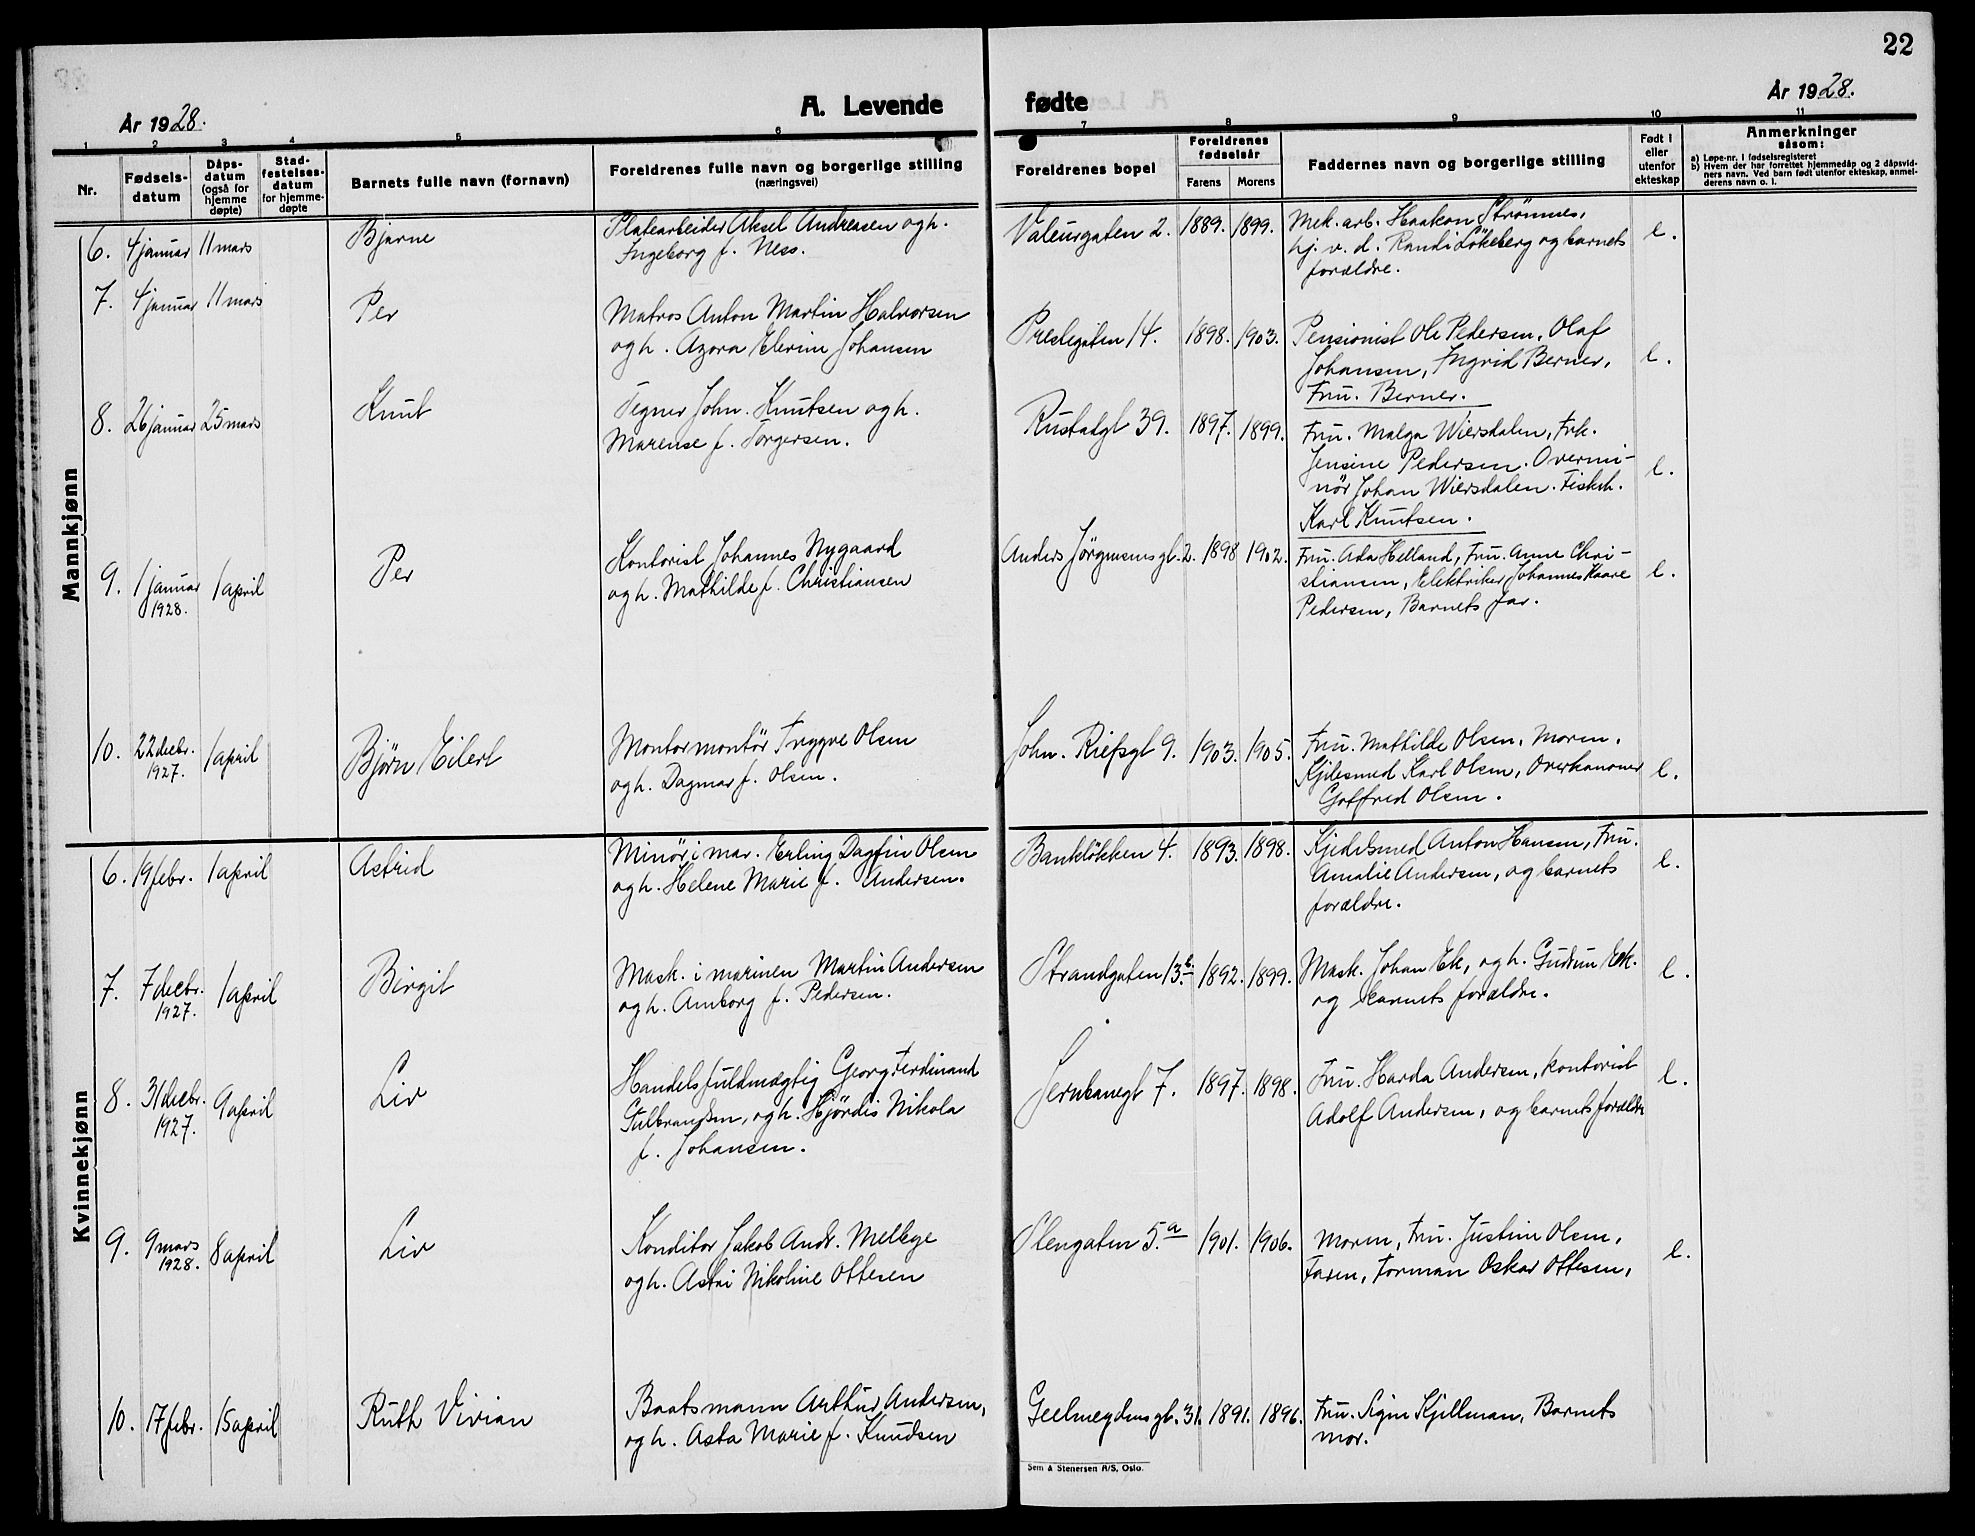 22
År 1928.
A. Levende
fødte
År 1928.
1 2 3 4 5 6 7 8 9 10 11
Nr.
Fødsels-
datum
Dåps-
datum
(også for
hjemme
døpte)
Stad-
festelses-
datum
for hjemme-
døpte
Barnets fulle navn (fornavn)
Foreldrenes fulle navn og borgerlige stilling
(næringsvei)
Foreldrenes bopel
Foreldrenes
fødselsår
Farens Morens
Faddernes navn og borgerlige stilling
Født i
eller
utenfor
ekteskap
Anmerkninger
såsom:
a) Løpe-nr. i fødselsregisteret
b) Hvem der har forrettet hjemmedåp og 2 dåpsvid-
ners navn. Ved barn født utenfor ekteskap, anmel-
derens navn o. l.
Mannkjønn
6. 4 januar 11 mars
Bjarne
Platearbeider Aksel Andreasen og h.
Ingeborg f. Ness.
Valeursgaten 2. 1889. 1899.
Mek. arb. Haakon Strømnes,
hj. v. d. Randi Løkeberg og barnets
forældre.
e.
7. 4 januar 11 mars
Per
Matros Anton Martin Halvorsen
og h. Azora Elerine Johansen
Prestegaten 14. 1898. 1903.
Pensionist Ole Pedersen, Olaf
Johansen, Ingrid Berner,
Fru. Berner.
e.
8. 26 januar 25 mars
Knut
Tegner John. Knutsen og h.
Marense f. Torgersen.
Rustadgt 39. 1897. 1899.
Fru. Malga Wiersdalen, Frk.
Jensine Pedersen. Overmi-
nør Johan Wiersdalen. Fiskeh.
Karl Knutsen.
e.
9. 1 januar 1 april
1928.
Per
Kontorist Johannes Nygaard
og h. Mathilde f. Christiansen
Anders Jørgensens gt. 2. 1898 1902.
Fru. Ada Helland, Fru. Anne Chri-
stiansen, Elektriker Johannes Kaare
Pedersen, Barnets far.
e.
10. 22 decbr. 1 april
1927.
Bjørn Eilert
Montørmontør Trygve Olsen
og h. Dagmar f. Olsen.
John. Riefsgt 9. 1903. 1905.
Fru. Mathilde Olsen, Moren,
Kjelesmed Karl Olsen, Overkanoner
Gotfred Olsen.
e.
Kvinnekjønn
6. 19 febr. 1 april
Astrid
Minør i mar. Erling Dagfin Olsen
og h. Helene Marie f. Andersen.
Bankløkken 4. 1893. 1898.
Kjedelsmed Anton Hansen, Fru.
Amalie Andersen, og barnets
forældre.
e.
7. 7 decbr. 1 april
1927.
Birgit
Mask. i marinen Martin Andersen
og h. Amborg f. Pedersen.
Strandgaten 13b. 1892. 1899.
Mask. Johan Ek, og h. Gudrun Ek.
og barnets forældre.
e.
8. 31 decbr. 9 april
1927.
Liv
Handelsfuldmægtig Georg Ferdinand
Gulbrandsen, og h. Hjørdis Nikola
f. Johansen.
Jernbanegt 7. 1897. 1898.
Fru. Harda Andersen, kontorist
Adolf Andersen, og barnets forældre
e.
9. 9 mars 8 april
1928.
Liv
Konditor Jakob Andr. Melbye
og h. Astri Nikoline Ottesen
Stengaten 5.a 1901. 1906.
Moren, Fru. Justine Olsen,
Faren, Forman Oskar Ottesen,
e.
10. 17 febr. 15 april
Ruth Vivian
Baatsmann Arthur Andersen,
og h. Asta Marie f. Knudsen
Geelmeydensgt. 31. 1891. 1896.
Fru. Signe Kjellman, Barnets
mor.
Sem & Stenersen A/S, Oslo.